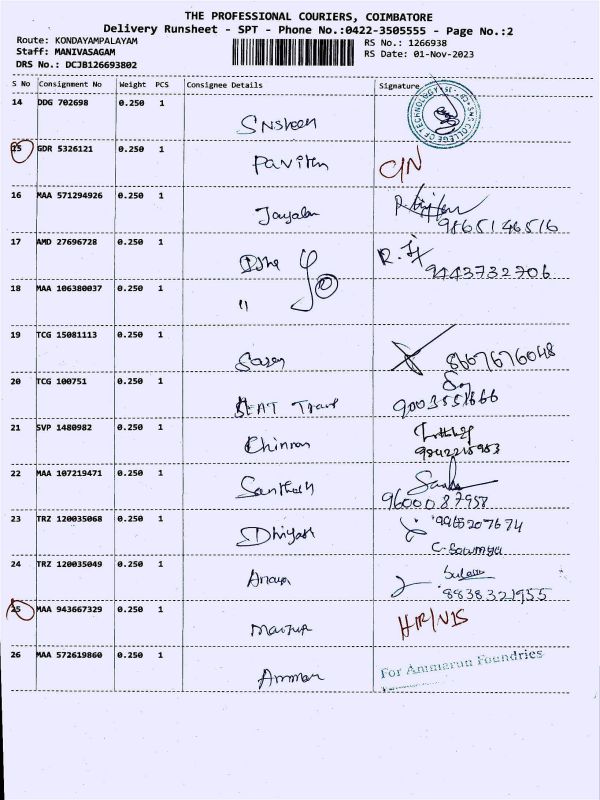 THE PROFESSIONAL COURIERS, COIMBATORE
Delivery Runsheet - SPT - Phone No.:0422-3505555 - Page No.:2
Route: KONDAYAMPALAYAM
RS No.: 1266938
Staff: MANIVASAGAM
RS Date: 01-Nov-2023
DRS No.: DCJB126693802
S No Consignment No Weight PCS Consignee Details Signature
14 DDG 702698 0.250 1
SNS COLLEGE OF TECHNOLOGY
15 GDR 5326121 0.250 1
Pavithn
16 MAA 571294926 0.250 1
Jayalan
9865146516
17 AMD 27696728 0.250 1
9443732706
18 MAA 106380037 0.250 1
"
19 TCG 15081113 0.250 1
8667676048
20 TCG 100751 0.250 1
21 SVP 1480982 0.250 1
Chinnan
9842215953
22 MAA 107219471 0.250 1
Santhosh
9600087958
23 TRZ 120035068 0.250 1
Dhiyash
9965207674
C. Sowmya
24 TRZ 120035049 0.250 1
8838321955
25 MAA 943667329 0.250 1
26 MAA 572619860 0.250 1
Amman
For Ammarun Foundries